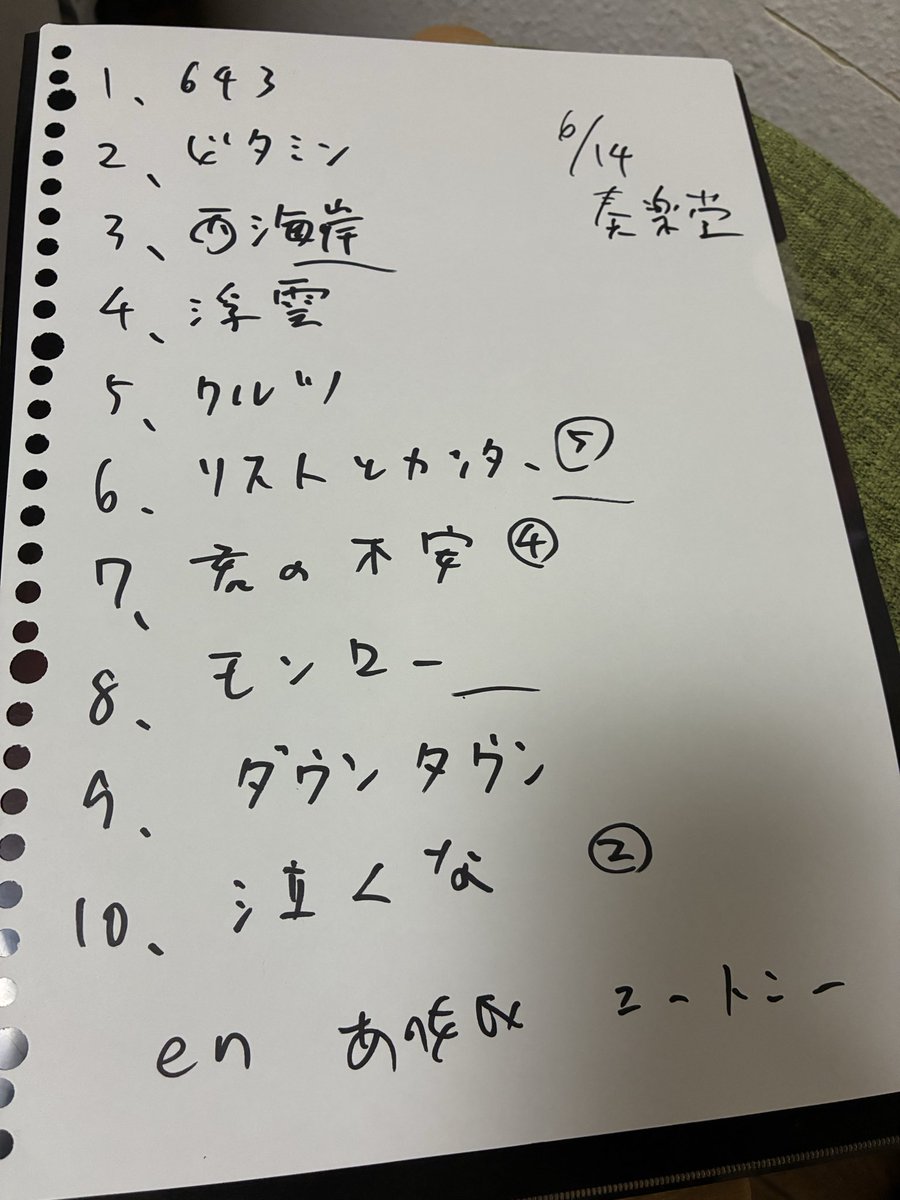 1、643
6/14
奏楽堂
2、ビタミン
3、西海岸
4、浮雲
5、ワルツ
6、リストとカンタ、⑤
7、君の不安 ④
8、モンロー
9、ダウンタウン
10、泣くな ②
en ユートニー